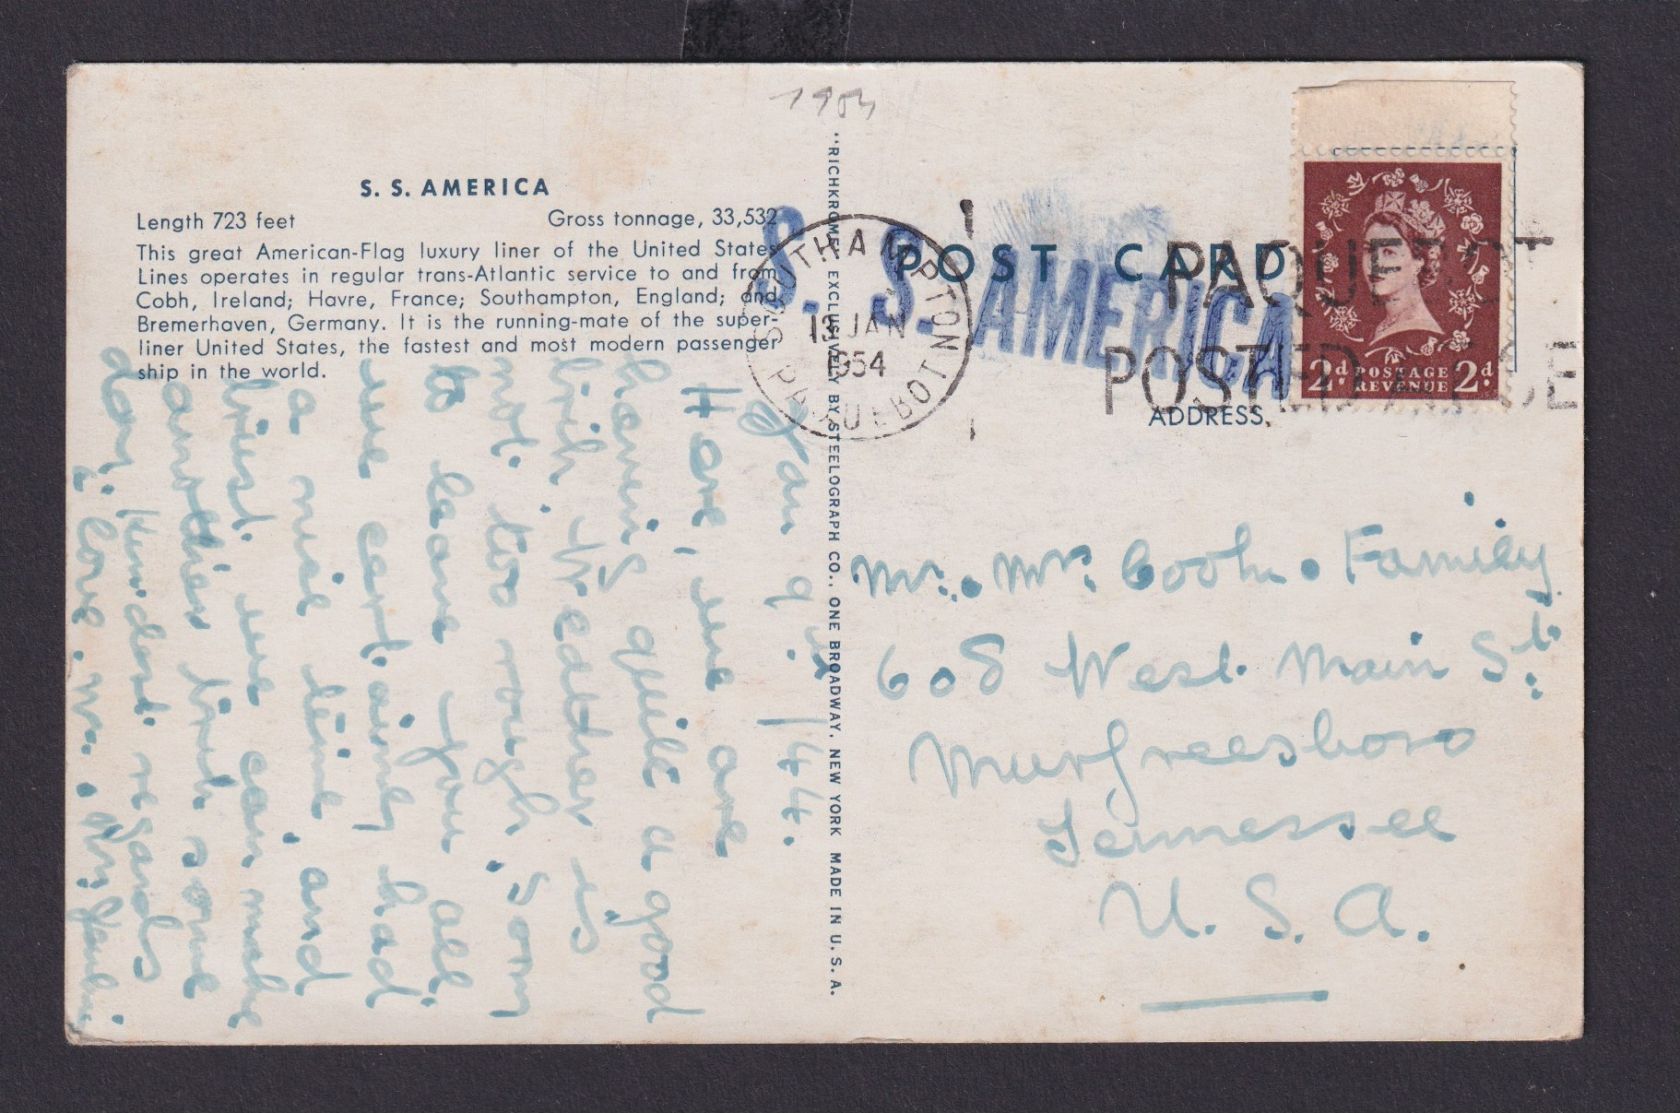 1954
S. S. AMERICA
Length 723 feet Gross tonnage, 33,532
This great American-Flag luxury liner of the United States
Lines operates in regular trans-Atlantic service to and from
Cobh, Ireland; Havre, France; Southampton, England; and
Bremerhaven, Germany. It is the running-mate of the super-
liner United States, the fastest and most modern passenger
ship in the world.
"RICHKROME" EXCLUSIVELY BY STEELOGRAPH CO., ONE BROADWAY, NEW YORK MADE IN U. S. A.
POST CARD
ADDRESS
S. S. AMERICA
SOUTHAMPTON
13 JAN
1954
PAQUEBOT
PAQUEBOT
POSTED AT SEA
2d POSTAGE REVENUE 2d
Jan 9. 1944.
Here, we are
having quite a good
trip. Weather is
not too rough. Sorry
to leave you all.
we certainly had
a nice time, and
trust we can make
another trip some
day. Kindest regards
love. Mr.
Mr. Mrs. Family
608 West Main St.
Murfreesboro
Tennessee
U. S. A.